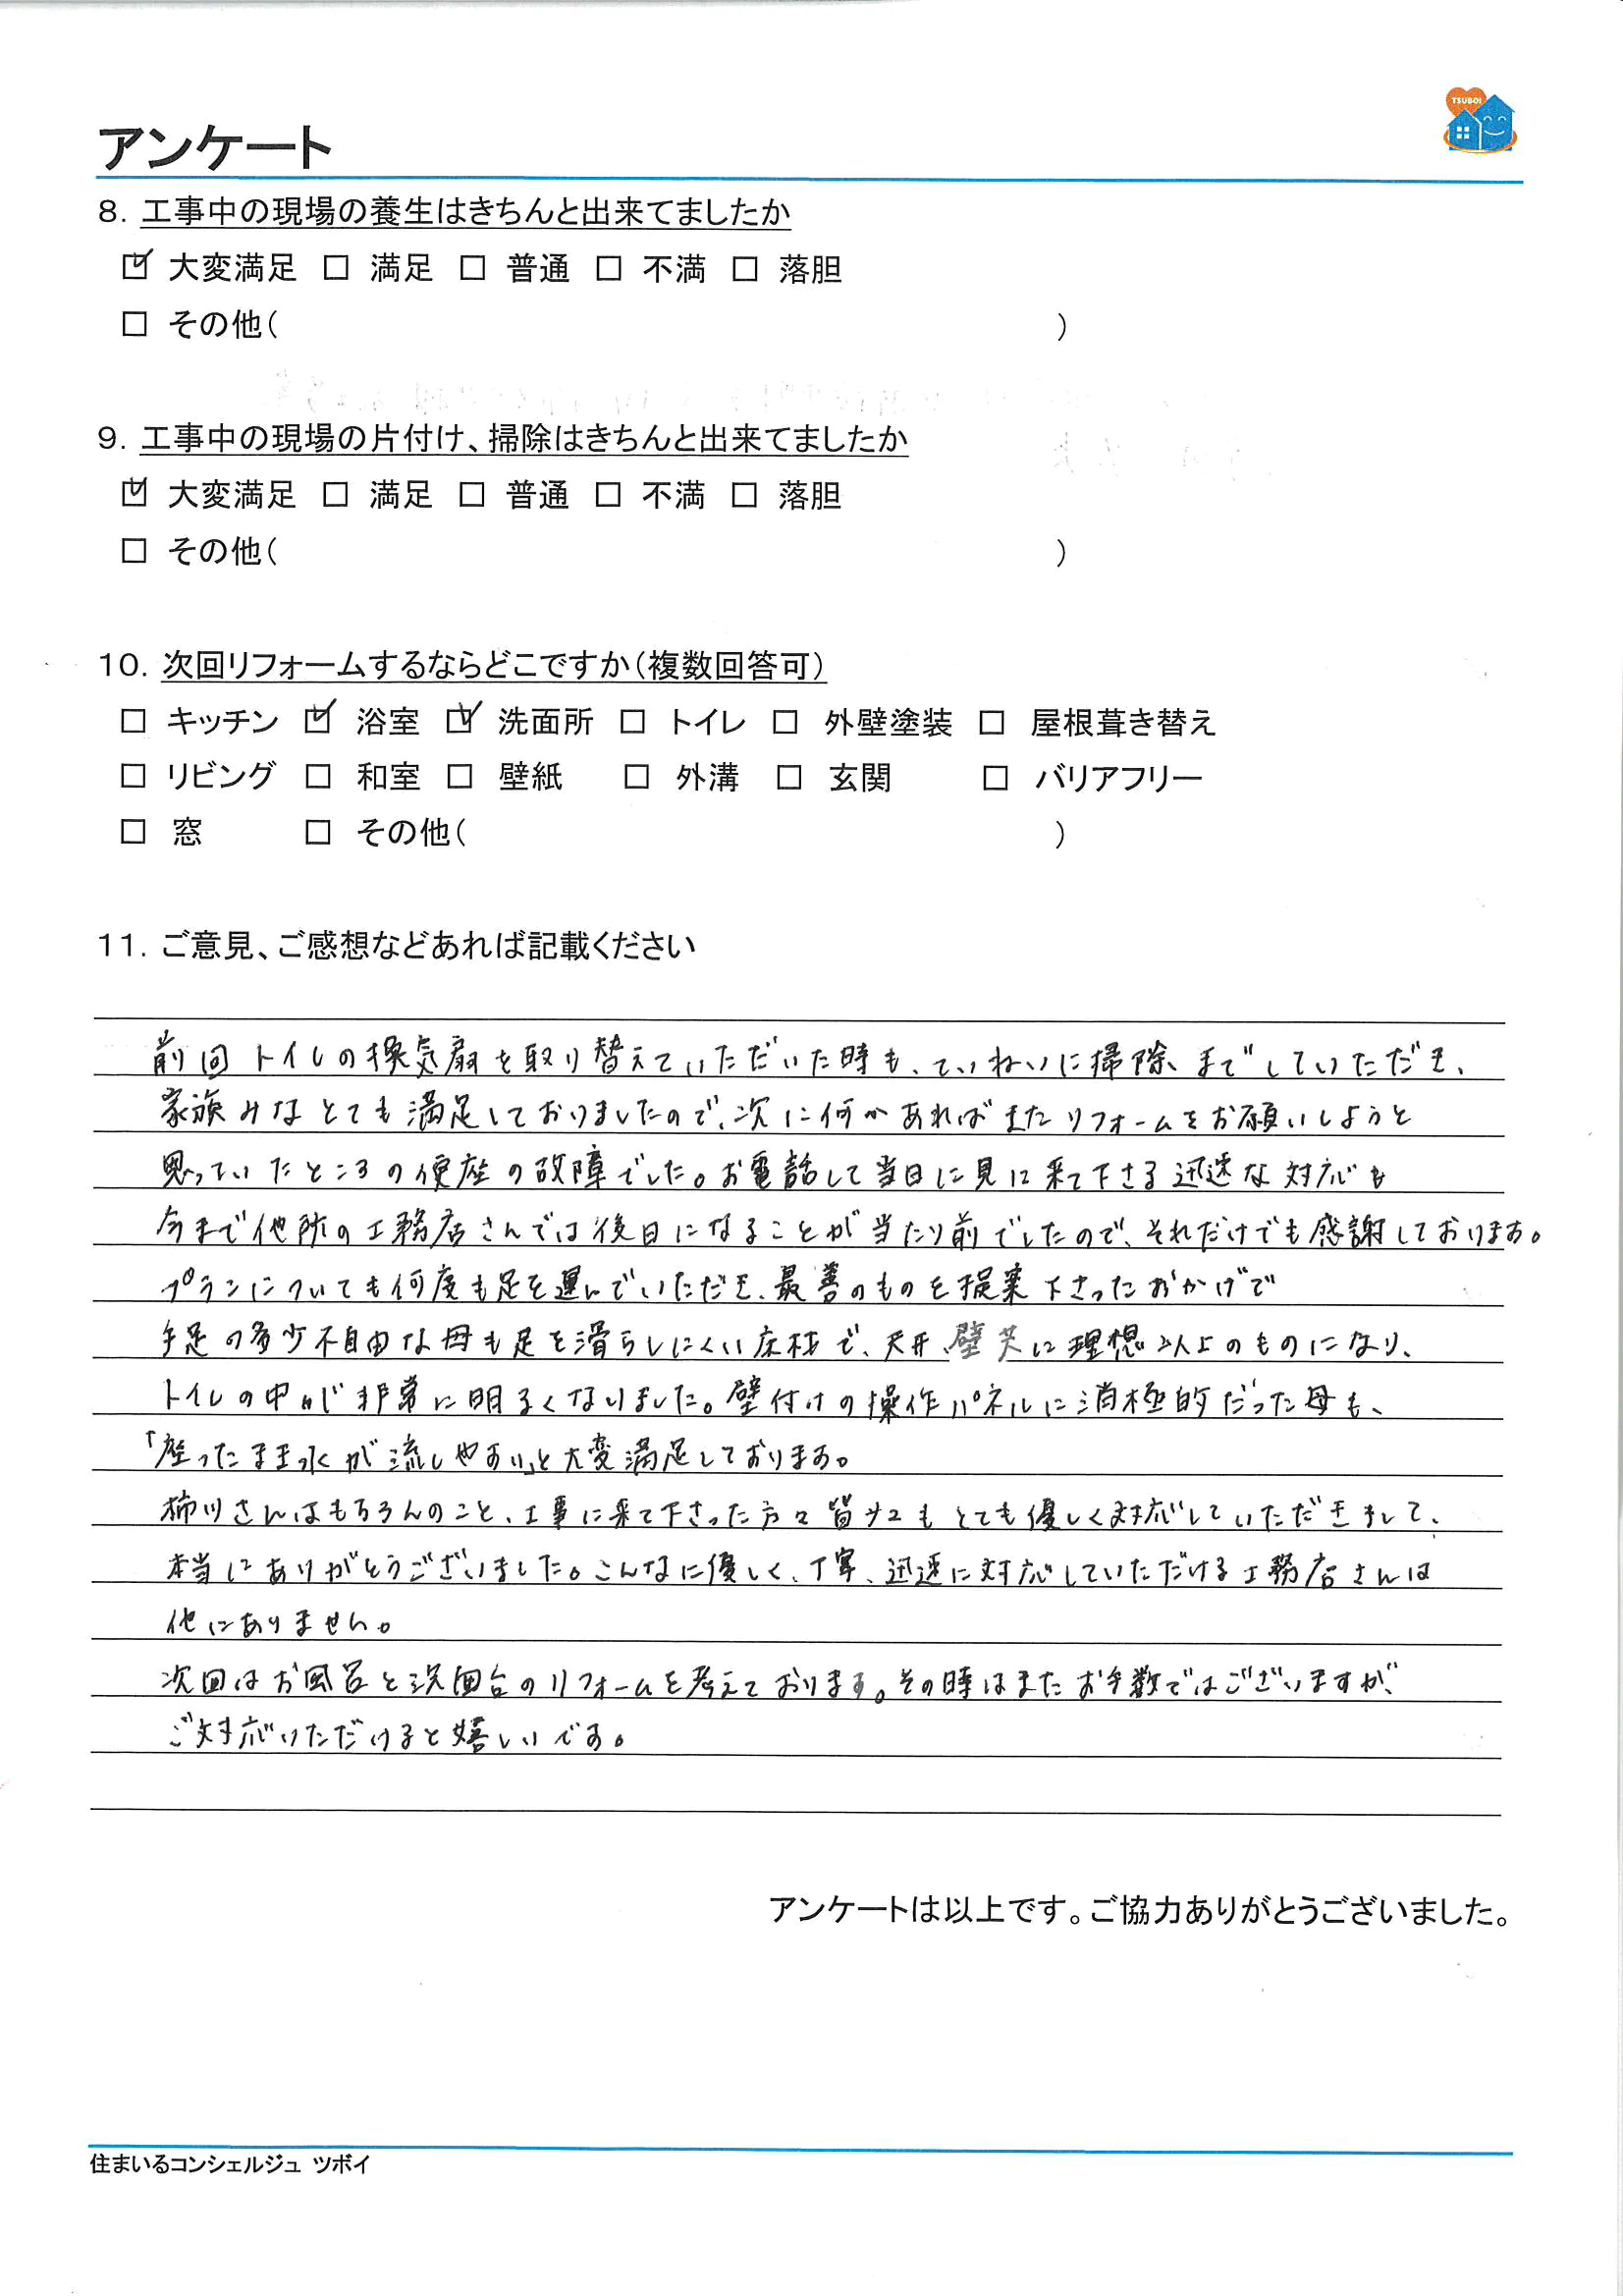 TSUBOI
アンケート
8. 工事中の現場の養生はきちんと出来てましたか
☑ 大変満足 □ 満足 □ 普通 □ 不満 □ 落胆
□ その他( )
9. 工事中の現場の片付け、掃除はきちんと出来てましたか
☑ 大変満足 □ 満足 □ 普通 □ 不満 □ 落胆
□ その他( )
10. 次回リフォームするならどこですか(複数回答可)
□ キッチン ☑ 浴室 ☑ 洗面所 □ トイレ □ 外壁塗装 □ 屋根葺き替え
□ リビング □ 和室 □ 壁紙 □ 外溝 □ 玄関 □ バリアフリー
□ 窓 □ その他( )
11. ご意見、ご感想などあれば記載ください
前回トイレの換気扇を取り替えていただいた時も、ていねいに掃除までしていただき、
家族みなとても満足しておりましたので、次に何かあればまたリフォームをお願いしようと
思っていたところの便座の故障でした。お電話して当日に見に来て下さる迅速な対応も
今まで他所の工務店さんでは後日になることが当たり前でしたので、それだけでも感謝しております。
プランについても何度も足を運んでいただき、最善のものを提案下さったおかげで
手足の多少不自由な母も足を滑らしにくい床材で、天井、壁共に理想以上のものになり、
トイレの中が非常に明るくなりました。壁付けの操作パネルに消極的だった母も、
「座ったまま水が流しやすい」と大変満足しております。
柿川さんはもちろんのこと、工事に来て下さった方々皆サマもとても優しく対応していただきまして、
本当にありがとうございました。こんなに優しく、丁寧、迅速に対応していただける工務店さんは
他にありません。
次回はお風呂と洗面台のリフォームを考えております。その時はまたお手数ではございますが、
ご対応いただけると嬉しいです。
アンケートは以上です。ご協力ありがとうございました。
住まいるコンシェルジュ ツボイ